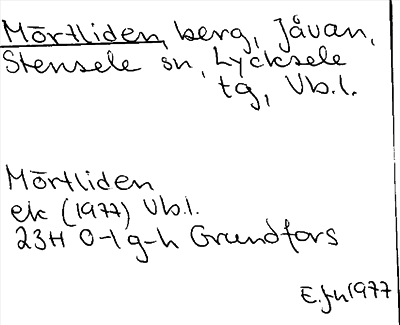 Mörtliden, berg, Jåvan,
Stensele sn, Lycksele
tg, Vb.l.
Mörtliden
ek (1977) Vb.l.
23H 0-1 g-h Grundfors
E. Jn 1977